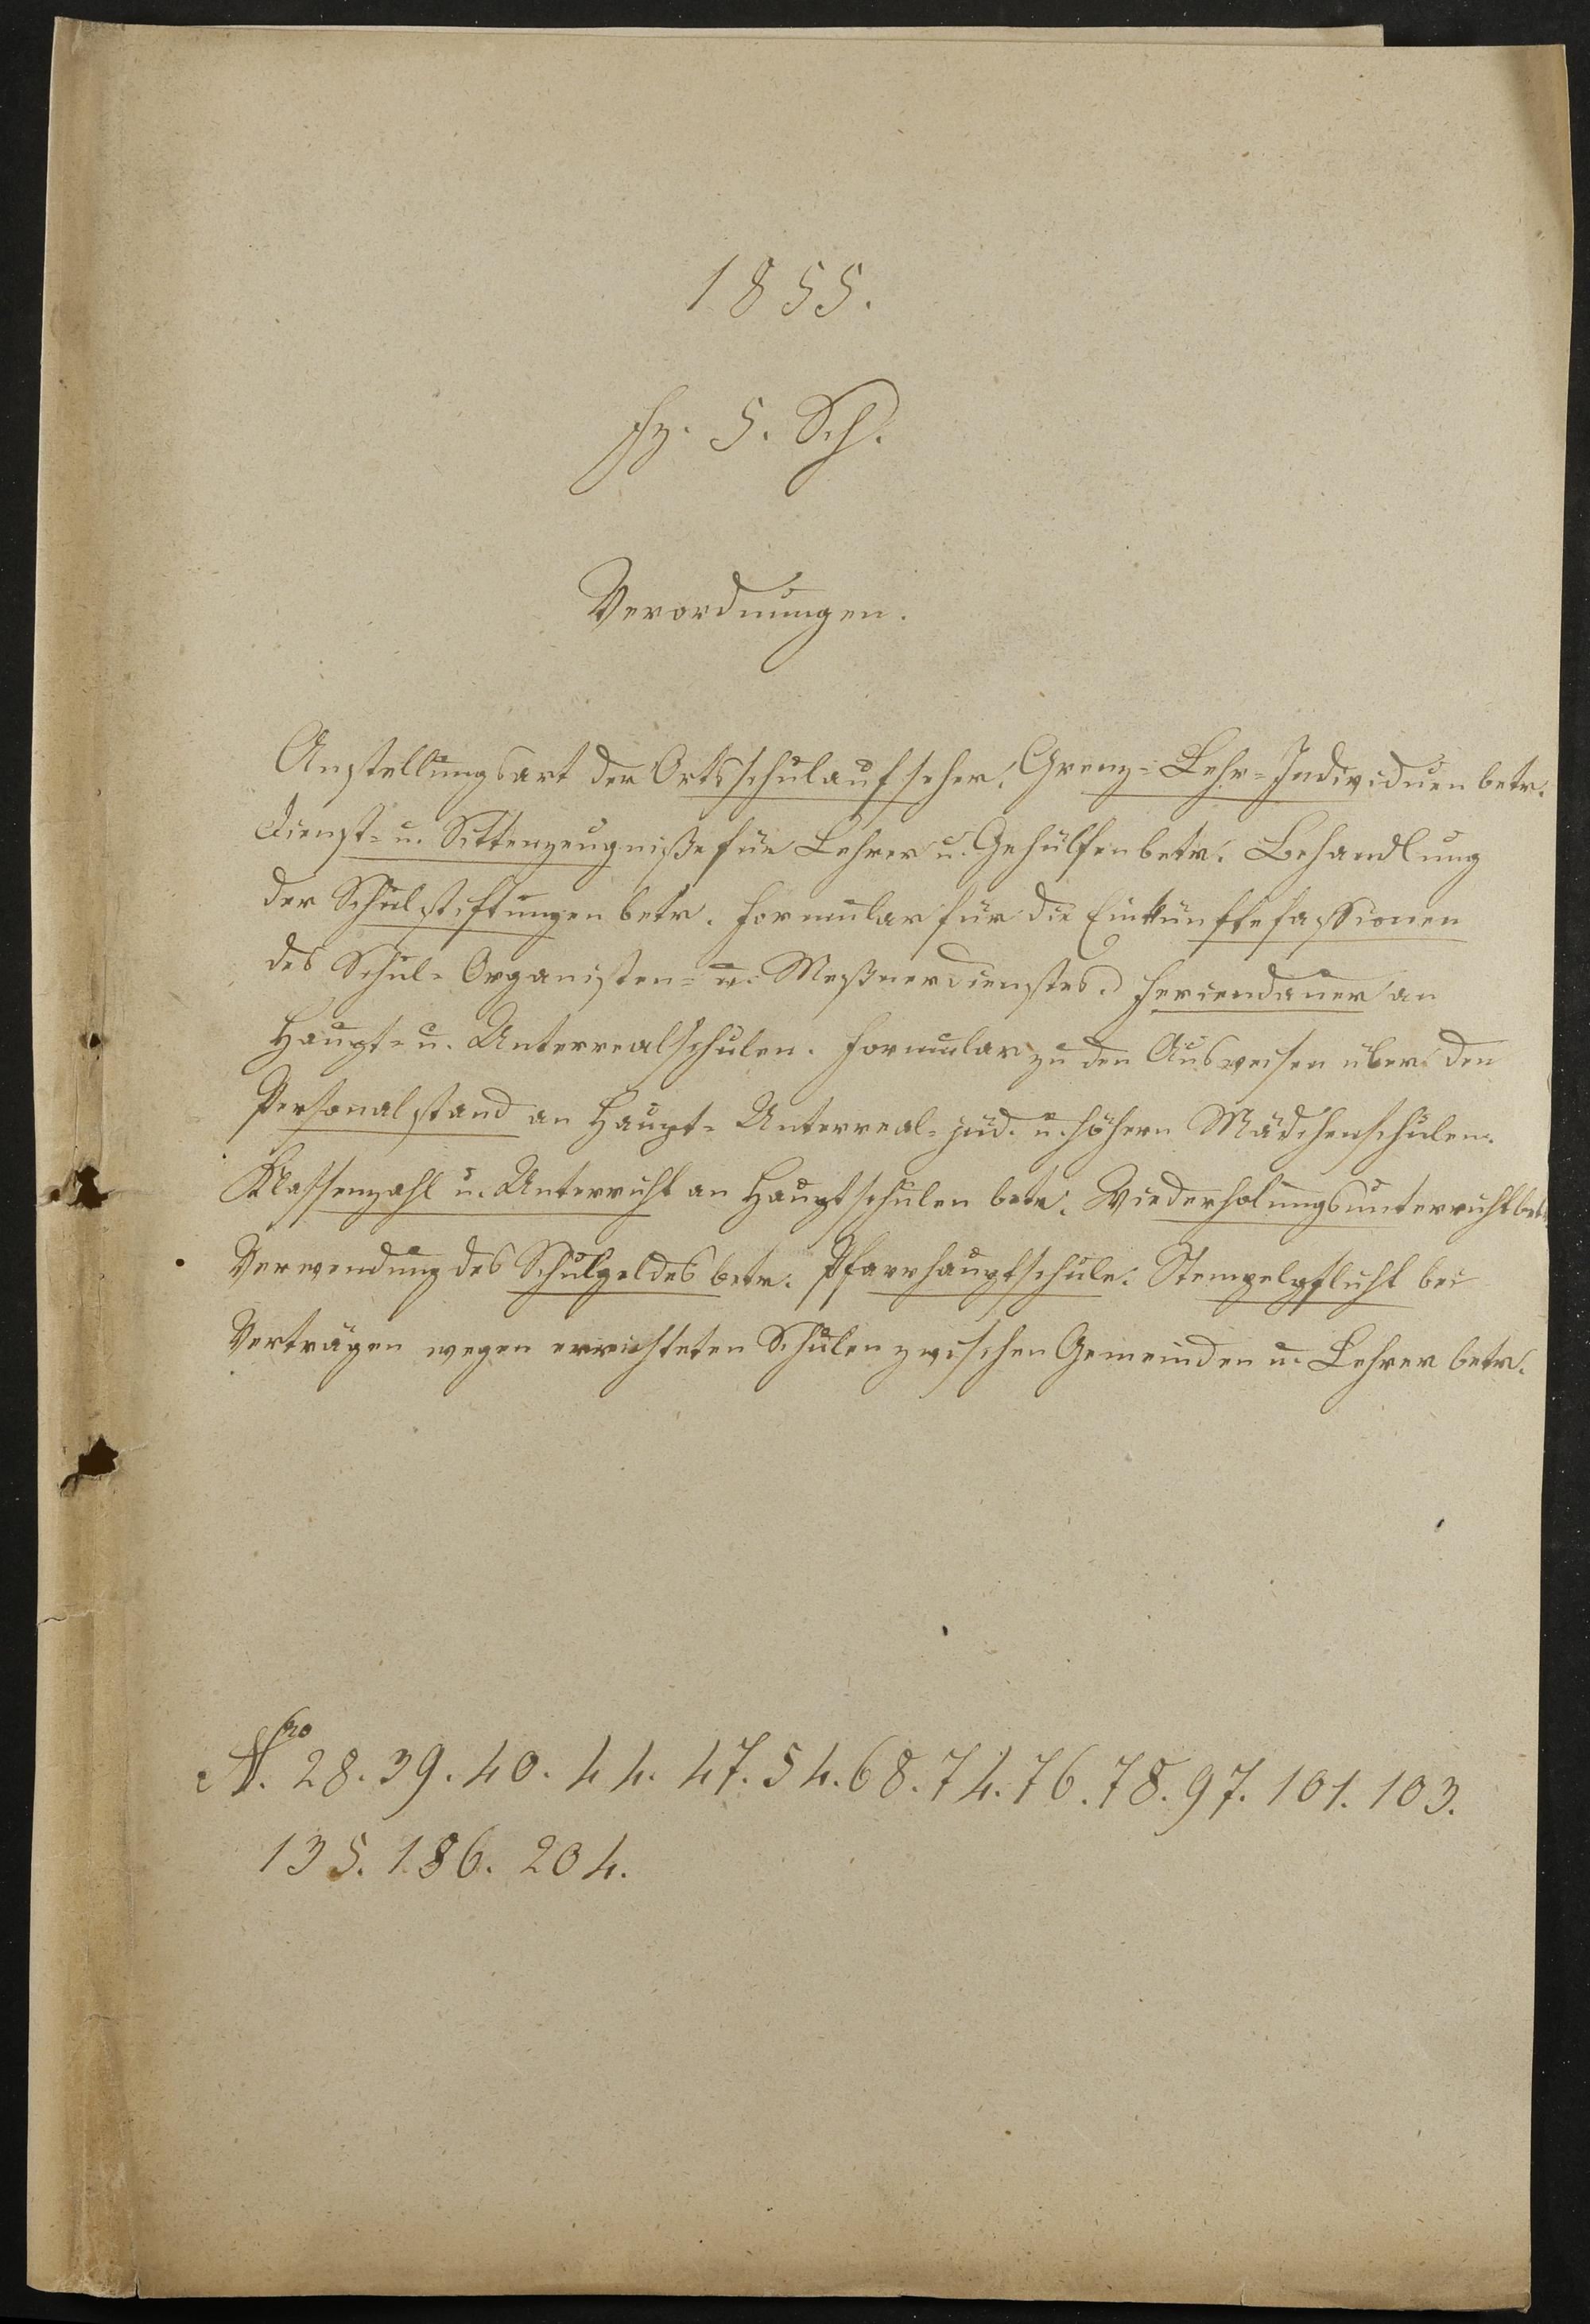 1855.
Fz. 5. Sch.
Verordnungen.
Anstellungsart der Ortsschulaufseher. Grenz-Lehr-Individuen betr.
Dienst- u. Sittenzeugniße für Lehrer u. Gehülfen betr. Behandlung
der Schulstiftungen betr. Formular für die Einkünftefassionen
des Schul- Organisten- u. Meßnerdienstes. Feriendauer an
Haupt- u. Unterrealschulen. Formular zu den Ausweisen über den
Personalstand an Haupt- Unterreal- jüd. u. höhern Mädchenschulen.
Klassenzahl u. Unterricht an Hauptschulen betr. Wiederholungsunterricht betr.
Verwendung des Schulgeldes betr. Pfarrhauptschule. Stempelpflicht bei
Verträgen wegen errichteten Schulen zwischen Gemeinden u. Lehrer betr.
Nro. 28. 39. 40. 44. 47. 54. 68. 74. 76. 78. 97. 101. 103.
135. 186. 204.